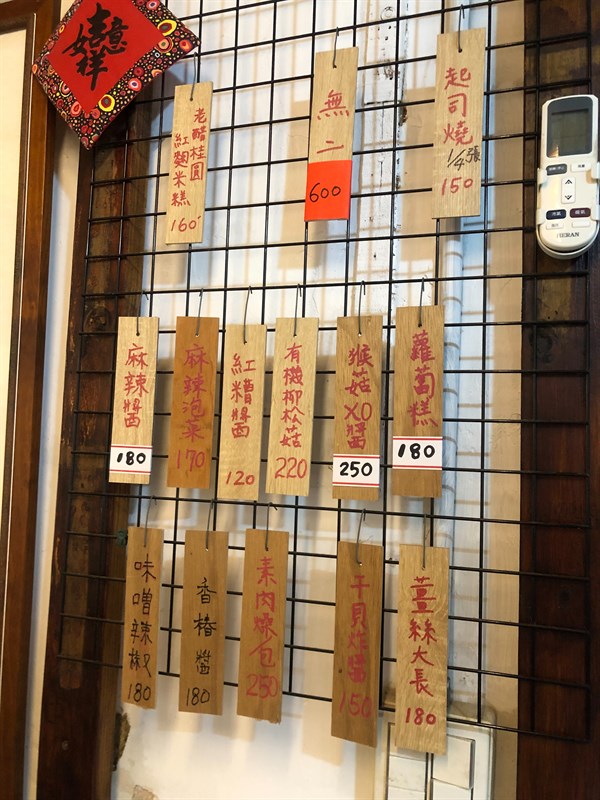 吉意
如祥
老醋桂圓
紅麴米糕
160
無二
600
起司燒
1/4張
150
HERAN
麻辣醬
180
麻辣泡菜
170
紅糟醬
120
有機柳松菇
220
猴菇XO醬
250
蘿蔔糕
180
味噌辣椒
180
香椿醬
180
素肉燥包
250
干貝炸醬
150
薑絲大長
180